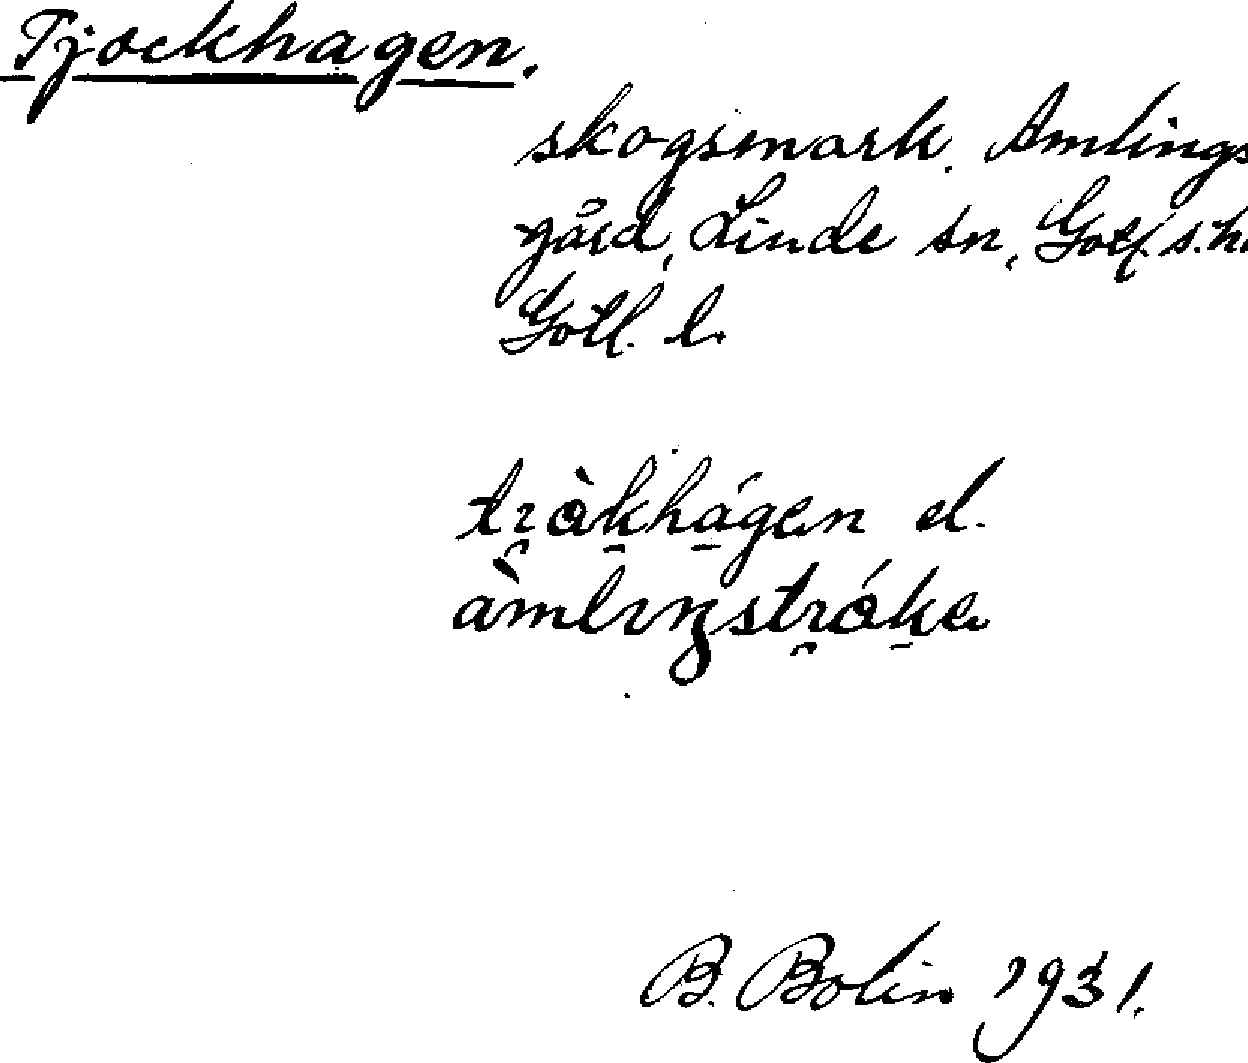 Tjockhagen.
skogsmark. Amlings
gård, Linde sn, Gotl. s. h.
Gotl. l.
el.
B. Bolin 1931.